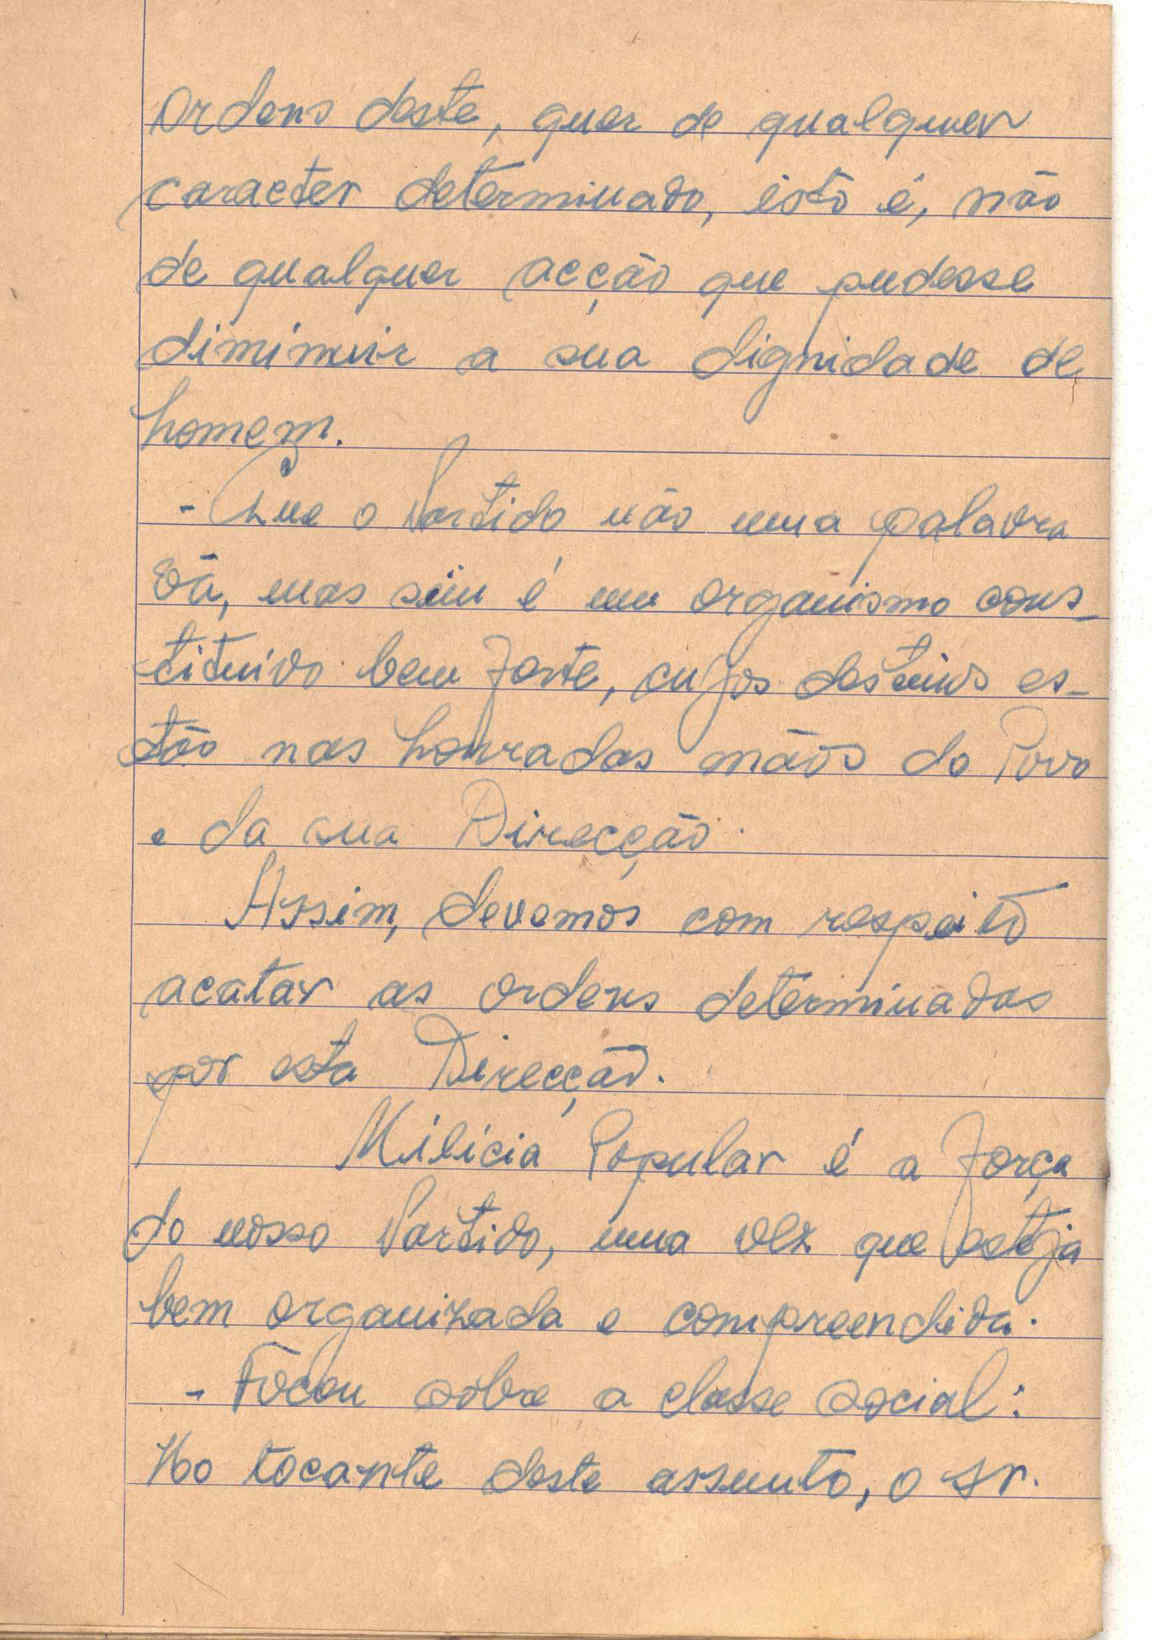 ordens deste, quer de qualquer
caracter determinado, isto é, não
de qualquer acção que pudesse
diminuir a sua dignidade de
homem.
- Que o Partido não uma palavra
vã, mas sim é um organismo cons-
tituido bem forte, cujos destinos es-
tão nas honradas mãos do Povo
e da sua Direcção.
Assim, devemos com respeito
acatar as ordens determinadas
por esta Direcção.
Milicia Popular é a força
do nosso Partido, uma vez que esteja
bem organizada e compreendida.
- Fôcou sôbre a classe social:
No tocante deste assunto, o sr.